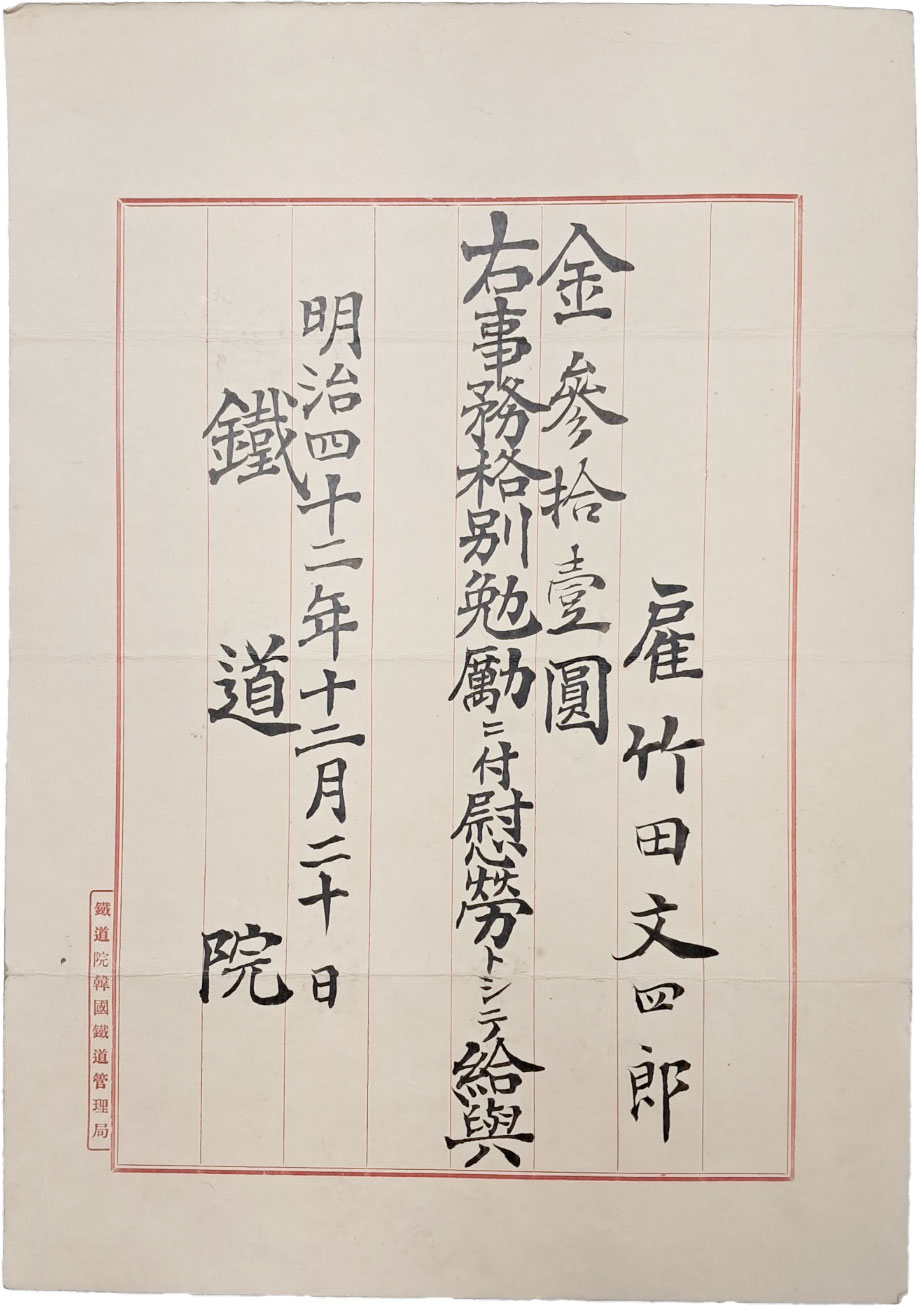 雇竹田文四郎
金參拾壹圓
右事務格別勉勵ニ付慰勞トシテ給與
明治四十二年十二月二十日
鐵道院
鐵道院韓國鐵道管理局